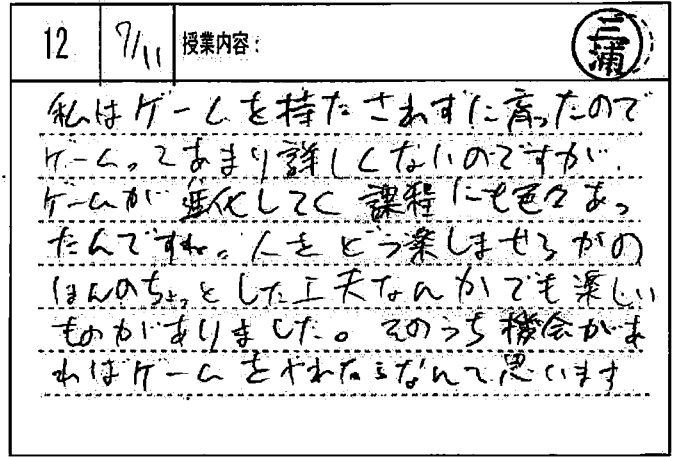 12 7/11 授業内容: 三浦
私はゲームを持たされずに育ったので
ゲームってあまり詳しくないのですが、
ゲームが進化してく課程にも色々あっ
たんですね。人をどう楽しませるかの
ほんのちょっとした工夫なんかでも楽しい
ものがありました。そのうち機会があ
ればゲームをやれたらなんて思います